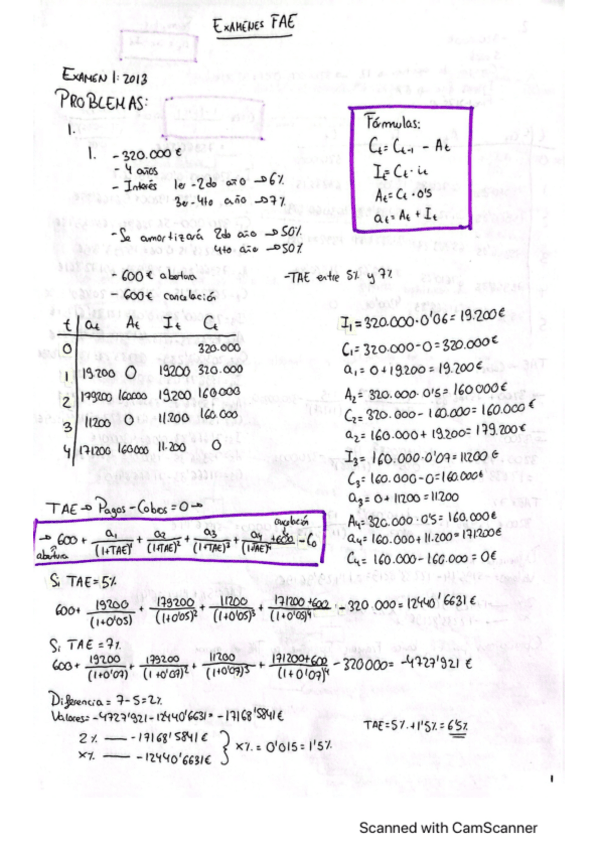 EXAMENES FAE
EXAMEN 1: 2013
PROBLEMAS:
1.
1. - 320.000 €
- 4 años
- Interés 1o - 2do año → 6%
3o - 4to año → 7%
- Se amortizará 2do año → 50%
4to año → 50%
- 600 € abertura
- 600 € cancelación
-TAE entre 5% y 7%
Fórmulas:
Ct = Ct-1 - At
It = Ct · it
At = Ct · 0'5
at = At + It
t | at At It Ct
0 320.000
1 19.200 0 19200 320.000
2 179200 160000 19.200 160.000
3 11200 0 11200 160.000
4 171200 160000 11.200 0
I1 = 320.000 · 0'06 = 19.200 €
C1 = 320.000 - 0 = 320.000 €
a1 = 0 + 19200 = 19.200 €
A2 = 320.000 · 0'5 = 160000 €
C2 = 320.000 - 160.000 = 160.000 €
a2 = 160.000 + 19.200 = 179.200 €
I3 = 160.000 · 0'07 = 11200 €
C3 = 160.000 - 0 = 160.000 €
a3 = 0 + 11200 = 11200
A4 = 320.000 · 0'5 = 160.000 €
a4 = 160.000 + 11.200 = 171200 €
C4 = 160.000 - 160.000 = 0 €
TAE → Pagos - Cobos = 0 →
cancelación
→ 600 + a1/(1+TAE) + a2/(1+TAE)² + a3/(1+TAE)³ + a4 + 600/(1+TAE)⁴ - C0
abertura
Si TAE = 5%
600 + 19200/(1+0'05) + 179200/(1+0'05)² + 11200/(1+0'05)³ + 171200+600/(1+0'05)⁴ - 320 000 = 12440'6631 €
Si TAE = 7%
600 + 19200/(1+0'07) + 179200/(1+0'07)² + 11200/(1+0'07)³ + 171200+600/(1+0'07)⁴ - 320000 = -4727'921 €
Diferencia = 7 - 5 = 2%
Valores = -4727'921 - 12440'6631 = -17168'5841 €
2% — -17168'5841 €
x% — -12440'6631 €
x% = 0'015 = 1'5%
TAE = 5% + 1'5% = 6'5%
1
Scanned with CamScanner